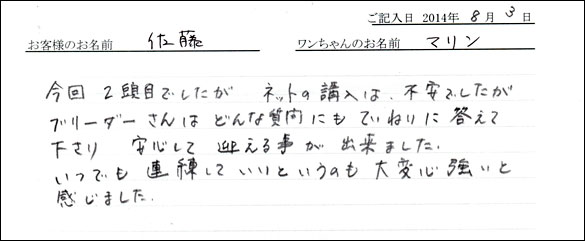 ご記入日 2014年 8月 3日
お客様のお名前 佐藤 ワンちゃんのお名前 マリン
今回 2頭目でしたが ネットの講入は、不安でしたが
ブリーダーさんは どんな質問にも ていねいに 答えて
下さり 安心して 迎える事が 出来ました。
いつでも 連練して いいというのも 大変心強いと
感じました。